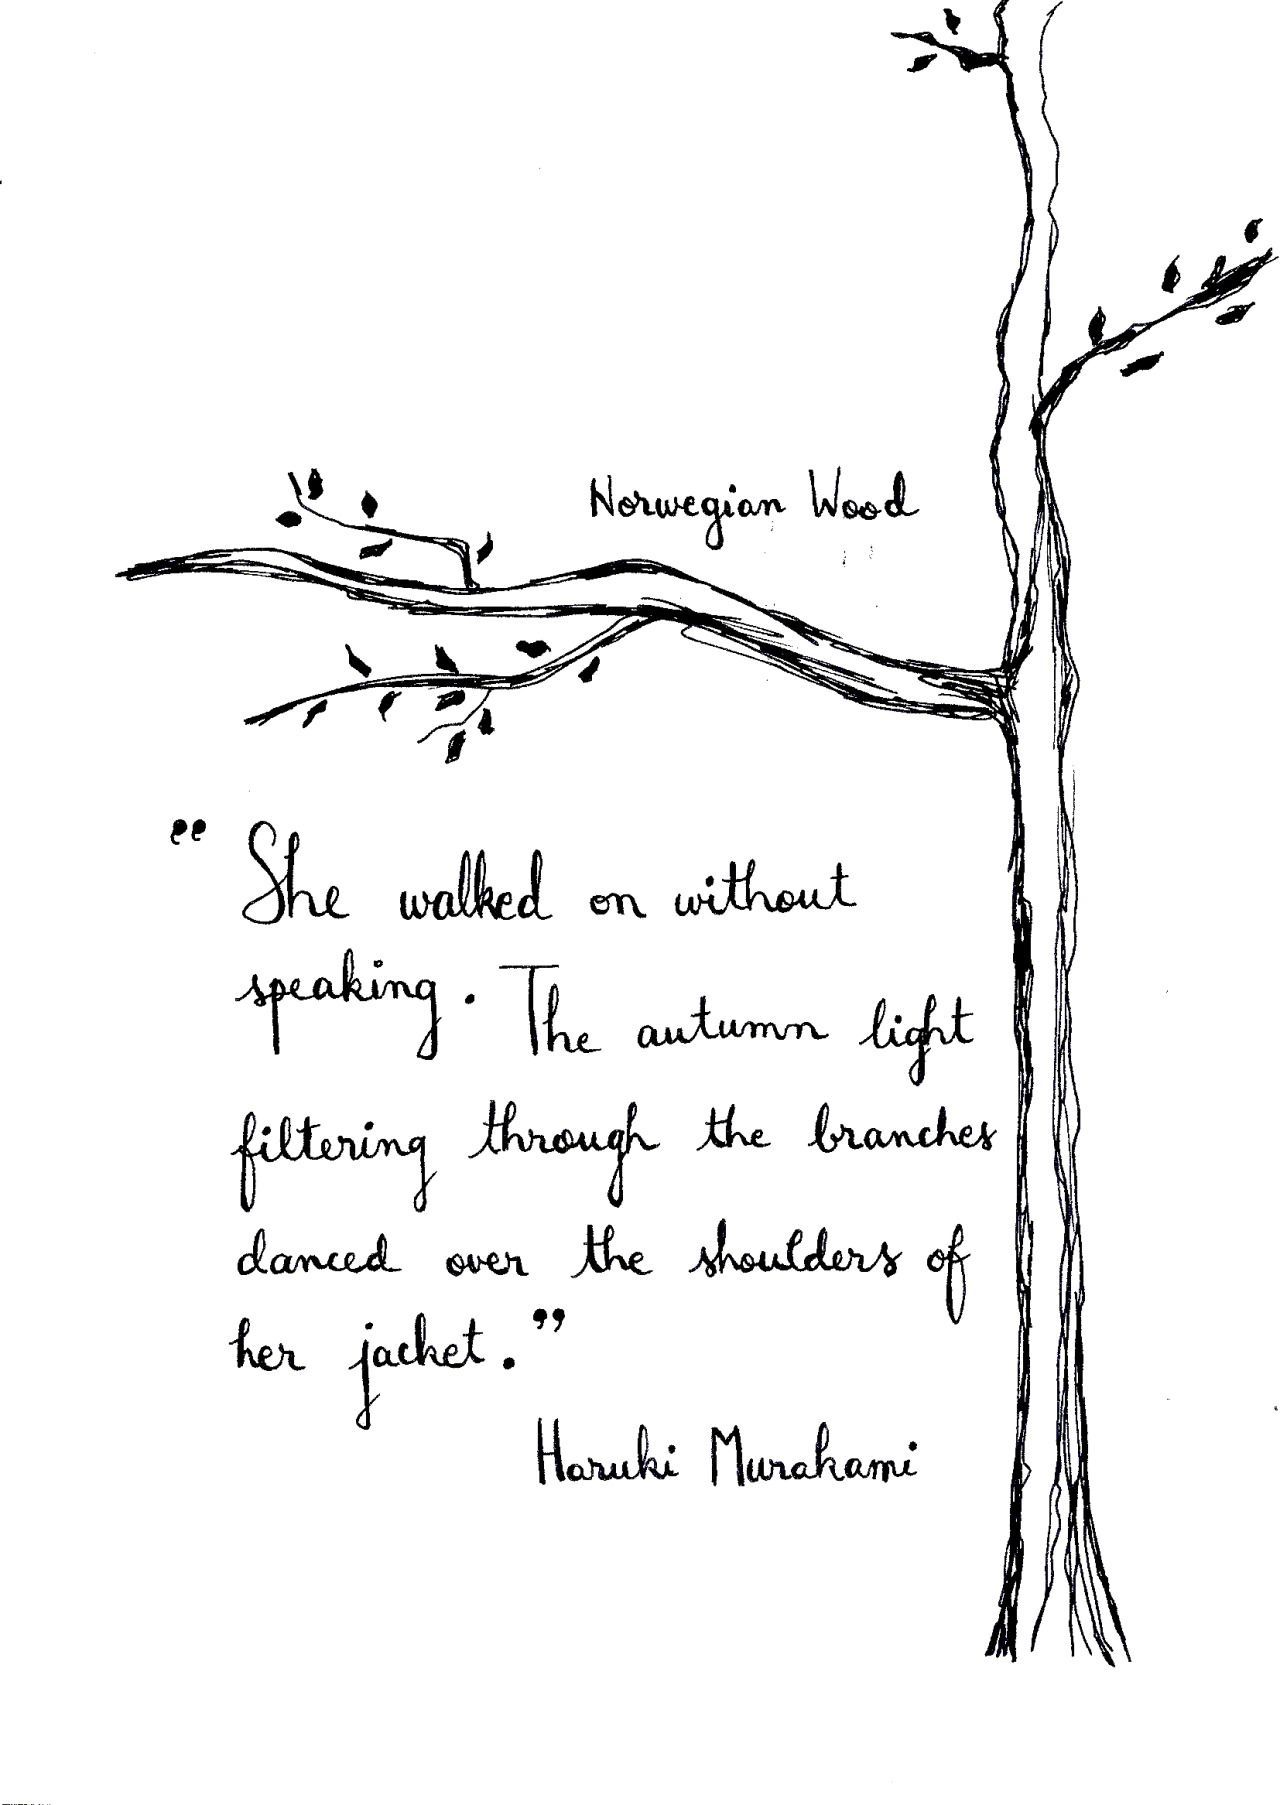 Norwegian Wood
"She walked on without
speaking. The autumn light
filtering through the branches
danced over the shoulders of
her jacket."
Haruki Murakami